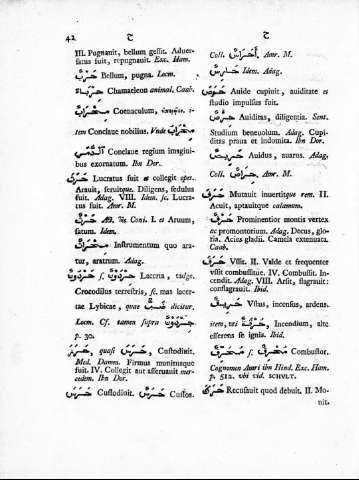 42 ح ح
III. Pugnauit, bellum gessit. Aduer-
satus fuit, repugnauit. Exc. Ham.
حَرْبٌ Bellum, pugna. Locm.
حِرْبَاء Chamaeleon animal. Caab.
مِحْرَابٌ Coenaculum,
tem Conclaue nobilius. Vnde مِحْرَابُ
Conclaue regium imagini-
bus exornatum. Ibn Dor.
حَرَثَ Lucratus fuit et collegit opes.
Arauit, seruitque. Diligens, sedulus
fuit. Adag. VIII. Idem. sc. Lucra-
tus fuit. Amr. M.
حَرْثٌ Ab. et Coni. I. et Aruum,
satum. Idem.
مِحْرَاثٌ Instrumentum quo ara-
tur, aratrum. Adag.
حَرْدُونٌ s. حِرْدَوْنٌ Lacerta, vulgo.
Crocodilus terrestris, sc. mas lacer-
tae Lybicae, quae ضَبٌّ dicitur.
Locm. Cf. tamen supra جردون
p. 30.
حَرَزَ, quasi حَرَسَ, Custodiuit.
Med. Damm. Firmus munitusque
fuit. IV. Collegit aut asseruauit mer-
cedem. Ibn Dor.
حَرَسَ Custodiuit. حَرَسٌ Custos.
Coll. أَحْرَاسٌ. Amr. M.
حَارِسٌ Idem. Adag.
حَرَصَ Auide cupiuit, auiditate et
studio impulsus fuit.
حِرْصٌ Auiditas, diligentia. Sent.
Studium beneuolum. Adag. Cupi-
ditas praua et indomita. Ibn Dor.
حَرِيصٌ Auidus, auarus. Adag.
Coll. حِرَاصٌ. Amr. M.
حَرَفَ Mutauit inuertitque rem. II.
Acuit, aptauitque calamum.
حَرْفٌ Prominentior montis vertex
ac promontorium. Adag. Decus, glo-
ria. Acies gladii. Camela extenuata.
Caab.
حَرَقَ Vssit. II. Valde et frequenter
vssit combussitue. IV. Combussit. In-
cendit. Adag. VIII. Arsit, flagrauit:
conflagrauit. Ibid.
حَرِيقٌ Vstus, incensus, ardens.
item, vti حُرْقَةٌ, Incendium, alte
efferens se ignis. Ibid.
مُحْرِقٌ s. مُحَرِّقٌ Combustor.
Cognomen Amri ibn Hind. Exc. Ham.
p. 512. vbi vid. SCHVLT.
حَرَنَ Recusauit quod debuit. II. Mo-
uit.